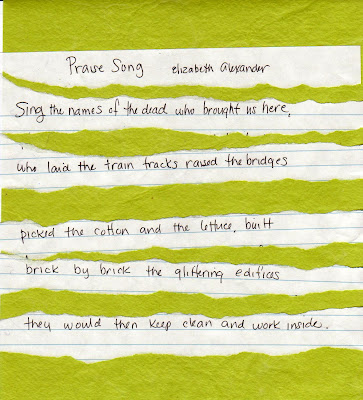 Praise Song elizabeth alexander
Sing the names of the dead who brought us here,
who laid the train tracks raised the bridges
picked the cotton and the lettuce, built
brick by brick the glittering edifices
they would then keep clean and work inside.